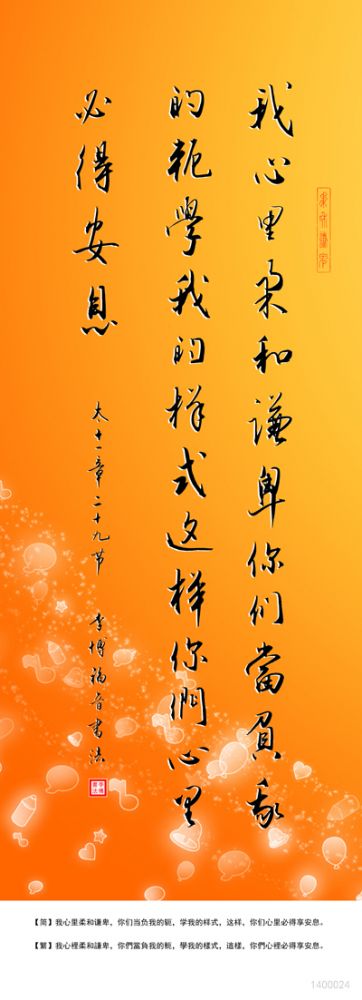 我心里柔和谦卑你们當負我
的軛學我的样式这样你們心里
必得安息
太十一章二十九节 李博福音書法
【简】我心里柔和谦卑，你们当负我的轭，学我的样式，这样，你们心里必得享安息。
【繁】我心裡柔和謙卑，你們當負我的軛，學我的樣式，這樣，你們心裡必得享安息。
1400024